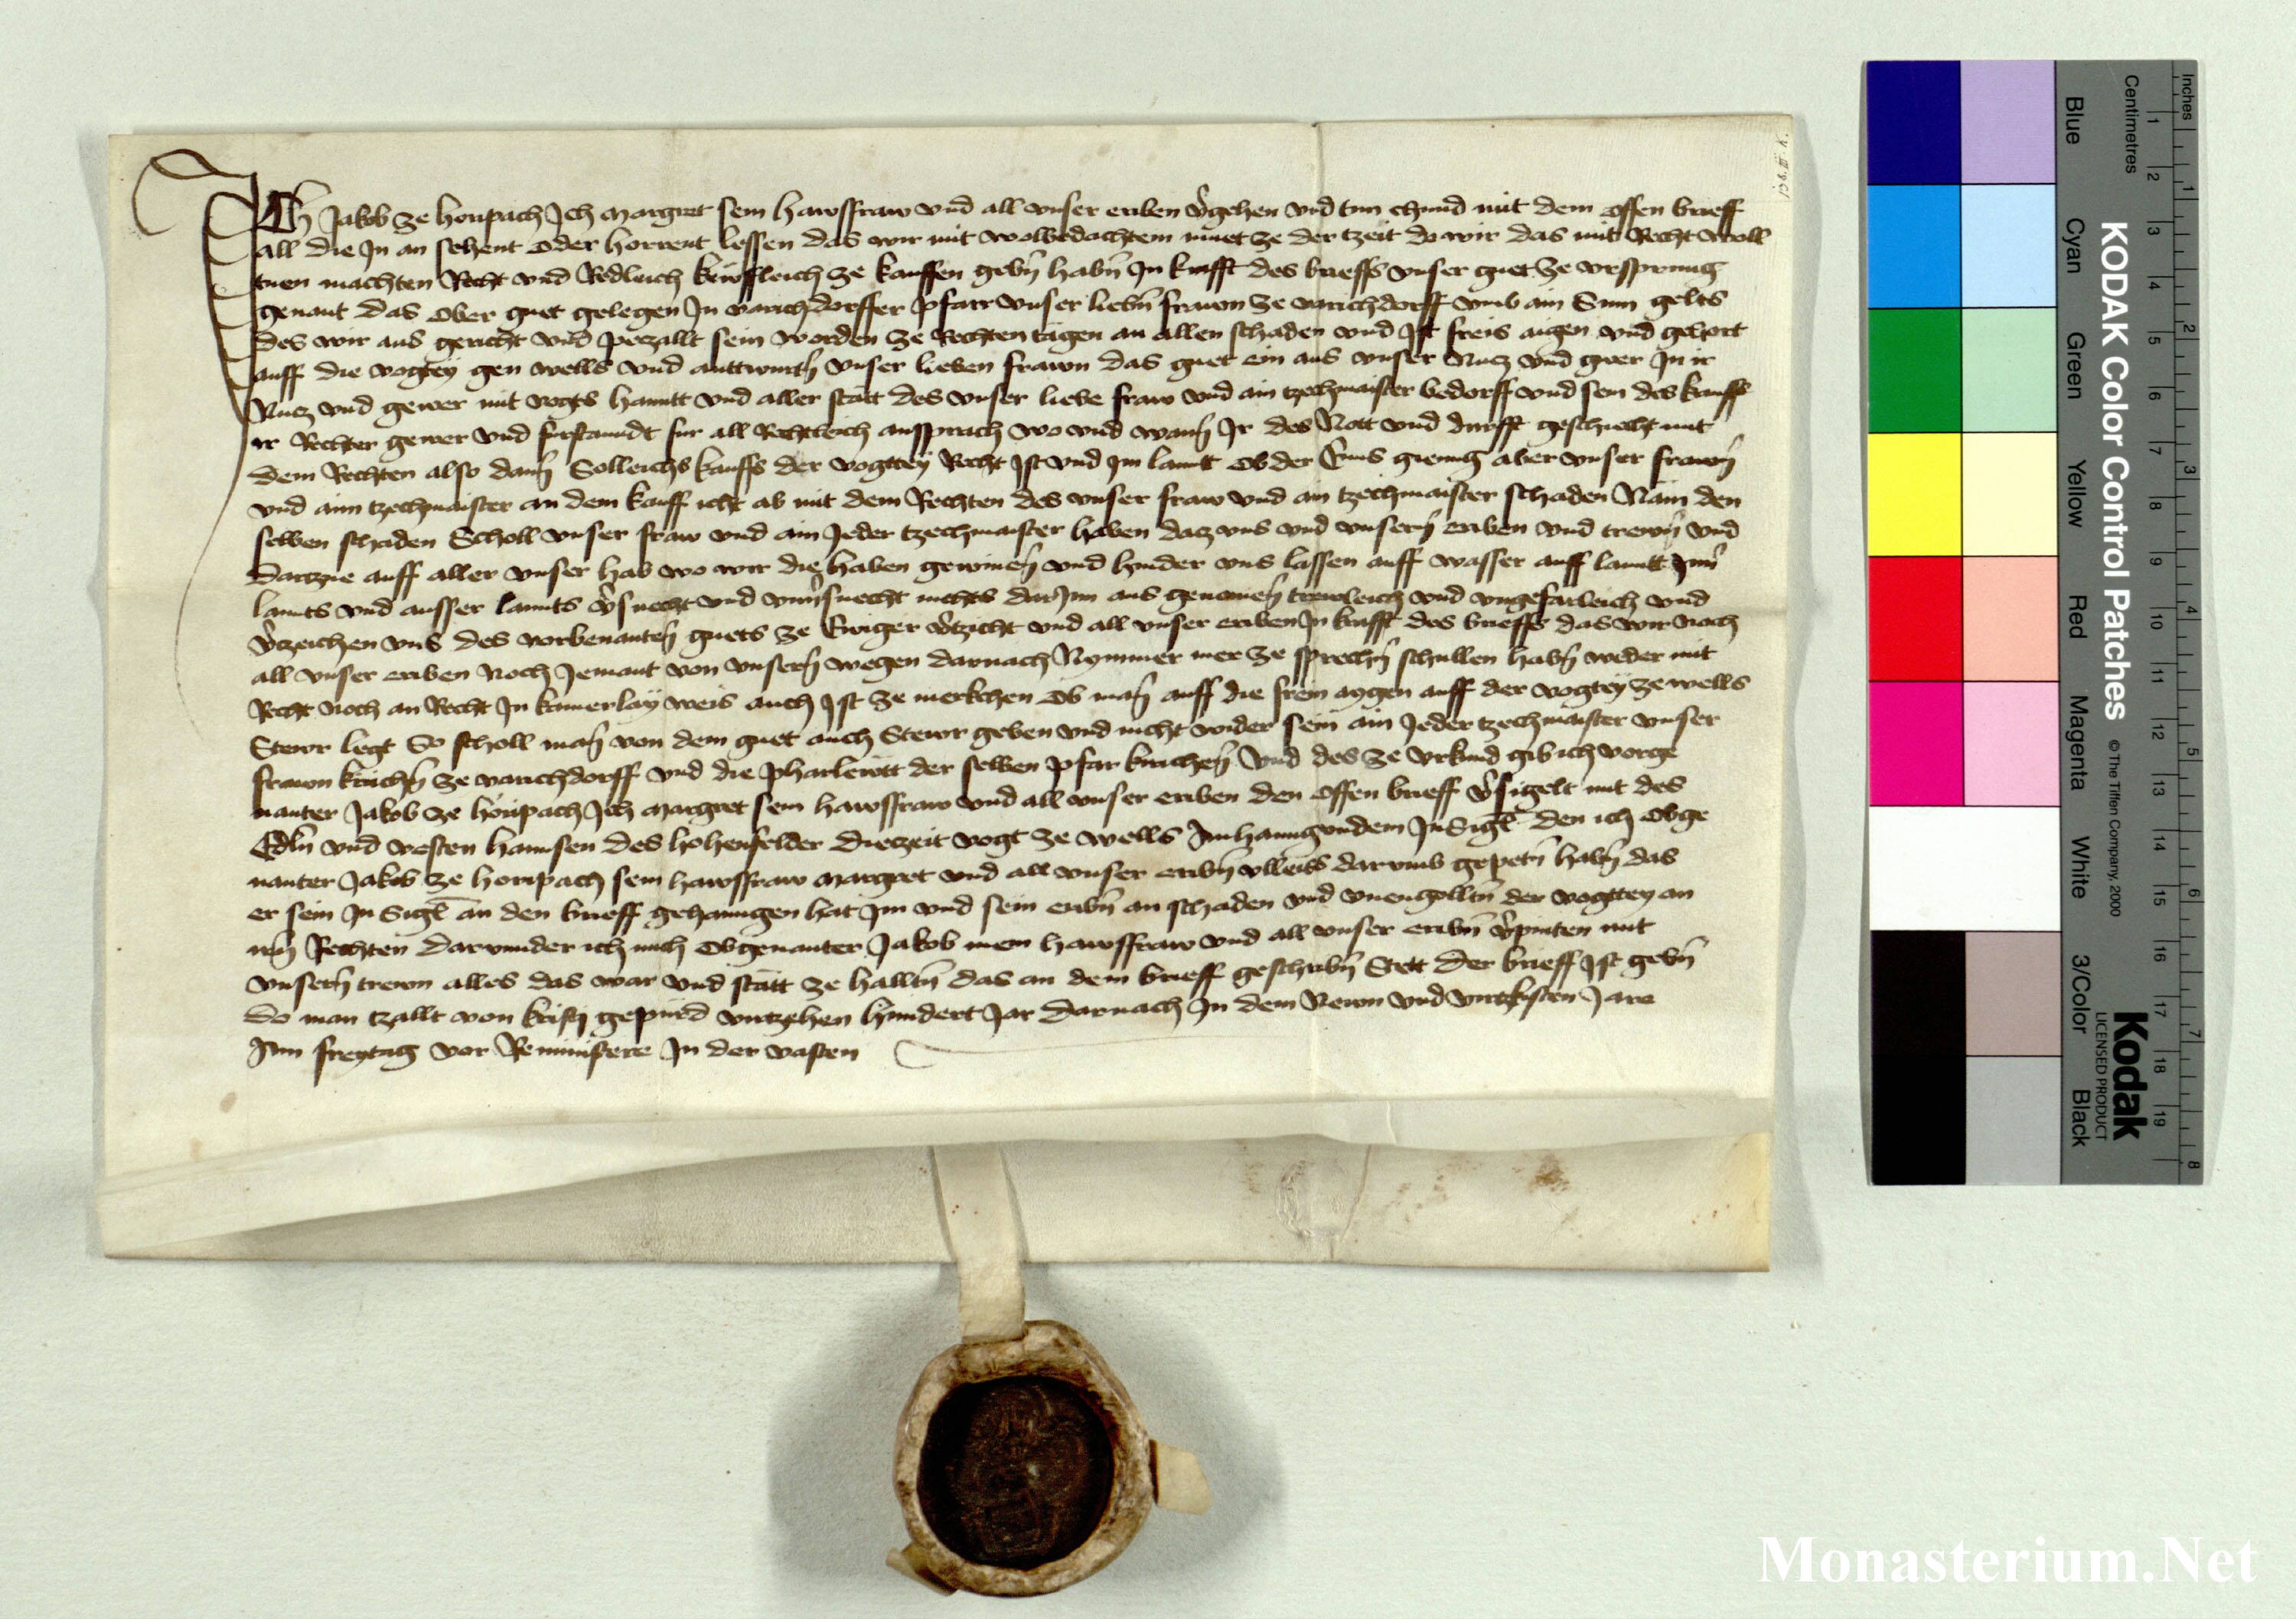 Ich Jakob ze horipach Ich margret sein hawsfraw vnd all vnser eriben v̂gehen vnd tun chund mit dem offen brieff
all die In an sehent oder horrent lessen das wir mit wolbedachtem muet ze der tzeit do wir das mit Recht woll
tuen machten Recht vnd Redleich kewffleich ze kauffen gebn̄ habn̄ In krafft des brieffs vnser guet ze vrsprung
genant das ober guet gelegen In varichdorffer pfarr vnser liebn̄ frawn ze varichdorff vmb ain Sum gelts
des wir aus gericht vnd peczallt sein worden ze Rechten tägen an allen schaden vnd Ist freis aigen vnd gehort
auff die vogtey gen wells vnd anttwurtn̄ vnser lieben frawn das guet ein aus vnser Nucz vnd gwer In ir
Nucz vnd gewer mit vogts hanntt vnd aller statt des vnser liebe fraw vnd ain tzechmaister bedorff vnd sein des kauffs
ir Rechter gewer vnd furstanndt fur all Rechtleich ansprach wo vnd wann̄ Ir des Nott vnd durfft geschiecht mit
dem Rechten also dann̄ Solleichs kauffs der vogttey Recht Ist vnd Im lantt ob der Enns gieng aber vnser frawn̄
vnd aim tzechmaister an dem kauff icht ab mit dem Rechten des vnser fraw vnd ain tzechmaister schaden Näm den
selben schaden Scholl vnser fraw vnd ain Jeder tzechmaister haben dacz vns vnd vnsern̄ eriben vnd trewn̄ vnd
dartzue auff aller vnser hab wo wir die haben gewinen̄ vnd hinder vns lassen auff wasser auff lantt Inn̄
lannts vnd ausser lannts v̂suecht vnd vnv̂suecht nichts dar Inn aus genomen̄ trewleich vnd vngefarleich vnd
v̂tzeichen vns des vorbenanten̄ guets ze Ewiger v̂tzicht vnd all vnser eriben In krafft des brieffs das wir noch
all vnser eriben noch Jemant von vnsern̄ wegen darnach Nymmer mer ze sprechn̄ schullen habn̄ weder mit
Recht noch an Recht In kainerlay weis auch Ist ze merkchen ob man̄ auff die frein aygen auff der vogtey ze wells
Stewr legt So scholl man̄ von dem guet auch Stewr geben vnd nicht wider sein ain Jeder tzechmaister vnser
frawn kirichn̄ ze varichdorff vnd die pharlewtt der selben pfar kirichen̄ Vnd des ze vrkund gib ich vorge
nanter Jakob ze horipach Ich margret sein hawsfraw vnd all vnser eriben den offen brieff v̂sigelt mit des
Edln̄ vnd vesten hannsen des hohenfelder dieczeit vogt ze wells Anhanngundem InSigl̄ den ich obge
nanter Jakob ze horipach sein hawsfraw margret vnd all vnser eribn̄ vlleiss darvmb gepetn̄ habn̄ das
er sein InSigl̄ an den brieff gehanngen hat Im vnd sein eribn̄ an schaden vnd vnengolltn̄ der vogttey an
irn̄ Rechten darvnnder ich mich obgenanter Jakob mein hawsfraw vnd all vnser eribn̄ v̂pinten mit
vnsern̄ trewn alles das war vnd statt ze halltn̄ das an dem brieff geschribn̄ Stett der brieff Ist gebn̄
do man tzallt von kristi gepurd virtzehen hundert Jar darnach In dem Newn vnd virtzkisten Jare
Am freytag vor Reminiscere In der vasten
136. III. K.
Inches
Centimetres
KODAK Color Control Patches
© The Tiffen Company, 2000
Kodak
LICENSED PRODUCT
Blue
Cyan
Green
Yellow
Red
Magenta
White
3/Color
Black
1 2 3 4 5 6 7 8 9 10 11 12 13 14 15 16 17 18 19
1 2 3 4 5 6 7 8
Monasterium.Net